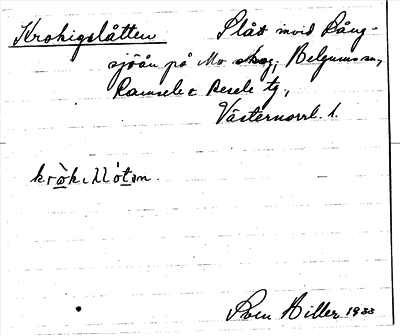 Krokigslåtten Slåt invid Rång-
sjöån på Mo skog, Helgums sn,
Ramsele o Resele tg,
Västernorrl. l.
Sven Hiller 1933